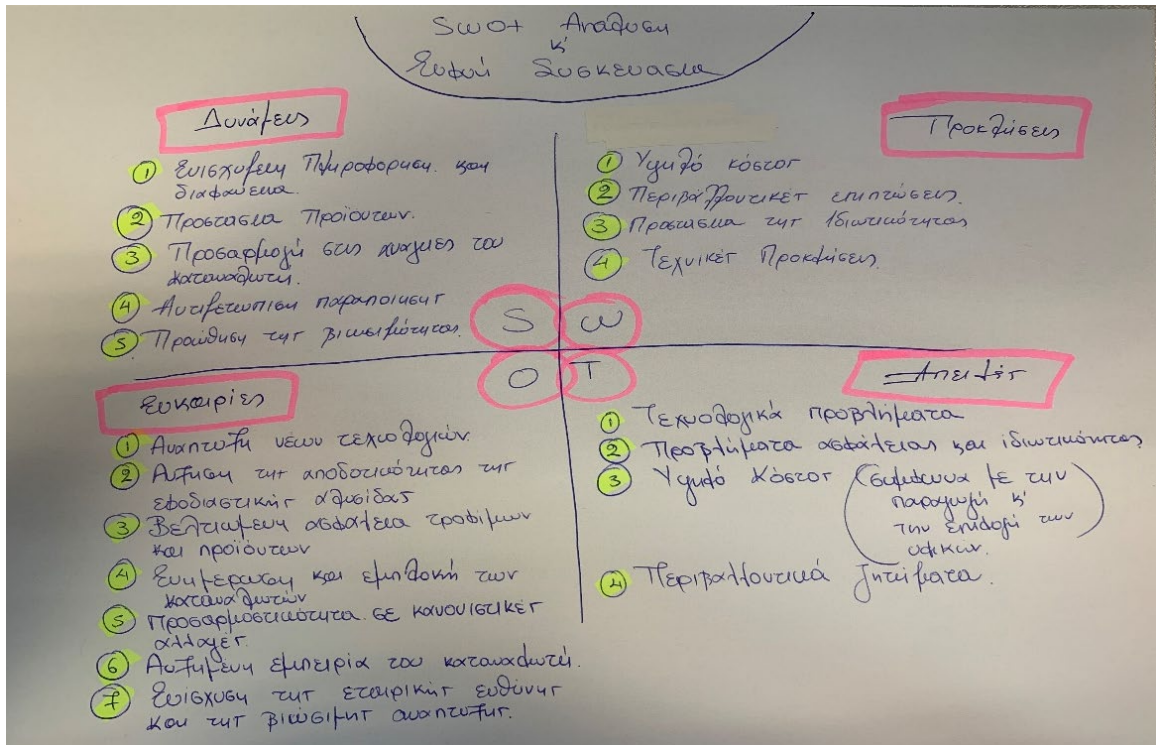 SWOT Ανάλυση
κ'
Ευφυή Συσκευασία
Δυνάμεις
① Ενισχυμένη Πληροφόρηση και
διαφάνεια.
② Προστασία Προϊόντων.
③ Προσαρμογή στις ανάγκες του
καταναλωτή.
④ Αντιμετώπιση παραποίησης
⑤ Προώθηση της βιωσιμότητας.
Προκλήσεις
① Υψηλό κόστος
② Περιβαλλοντικές επιπτώσεις.
③ Προστασία της Ιδιωτικότητας
④ Τεχνικές Προκλήσεις.
S W
O T
Ευκαιρίες
① Ανάπτυξη νέων τεχνολογιών.
② Αύξηση της αποδοτικότητας της
εφοδιαστικής αλυσίδας
③ Βελτιωμένη ασφάλεια τροφίμων
και προϊόντων
④ Ενημέρωση και εμπλοκή των
καταναλωτών
⑤ Προσαρμοστικότητα σε κανονιστικές
αλλαγές.
⑥ Αυξημένη εμπειρία του καταναλωτή.
⑦ Ενίσχυση της εταιρικής ευθύνης
και της βιώσιμης ανάπτυξης.
Απειλές
① Τεχνολογικά προβλήματα
② Προβλήματα ασφάλειας και ιδιωτικότητας
③ Υψηλό Κόστος (σύμφωνα με την
παραγωγή κ'
την επιλογή των
υλικών.)
④ Περιβαλλοντικά ζητήματα.